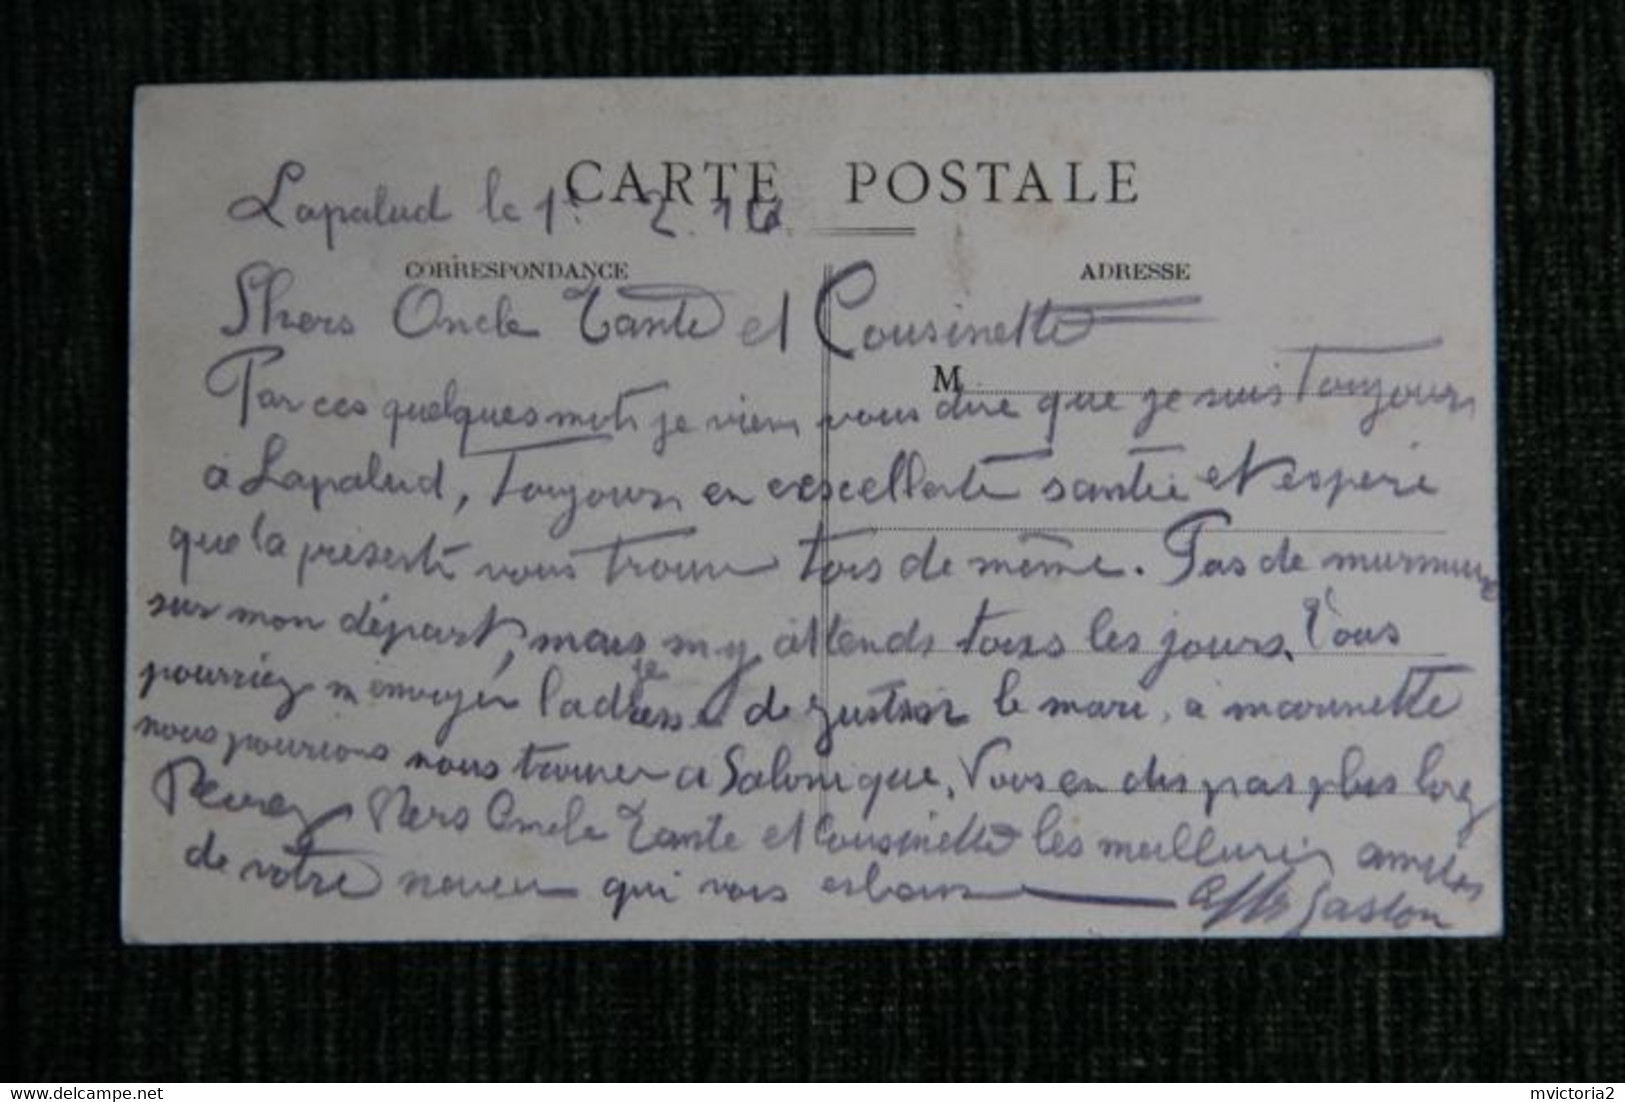 CARTE POSTALE
Lapalud le 1er 2. 16.
CORRESPONDANCE
ADRESSE
Chers Oncle Tante et Cousinette
M
Par ces quelques mots je viens vous dire que je suis Toujours
à Lapalud, Toujours en excellente santée et espere
que la présente vous trouve tous de même. Pas de murmure
sur mon départ, mais m'y attends tous les jours. Vous
pourriez m'envoyer l'adresse de le mari, a
nous pourrions nous trouver a Salonique. Vous en dis pas plus long
Recevez chers Oncle Tante et Cousinette les meilleures amitiés
de votre neveu qui vous Gaston
delcampe.net
mvictoria2